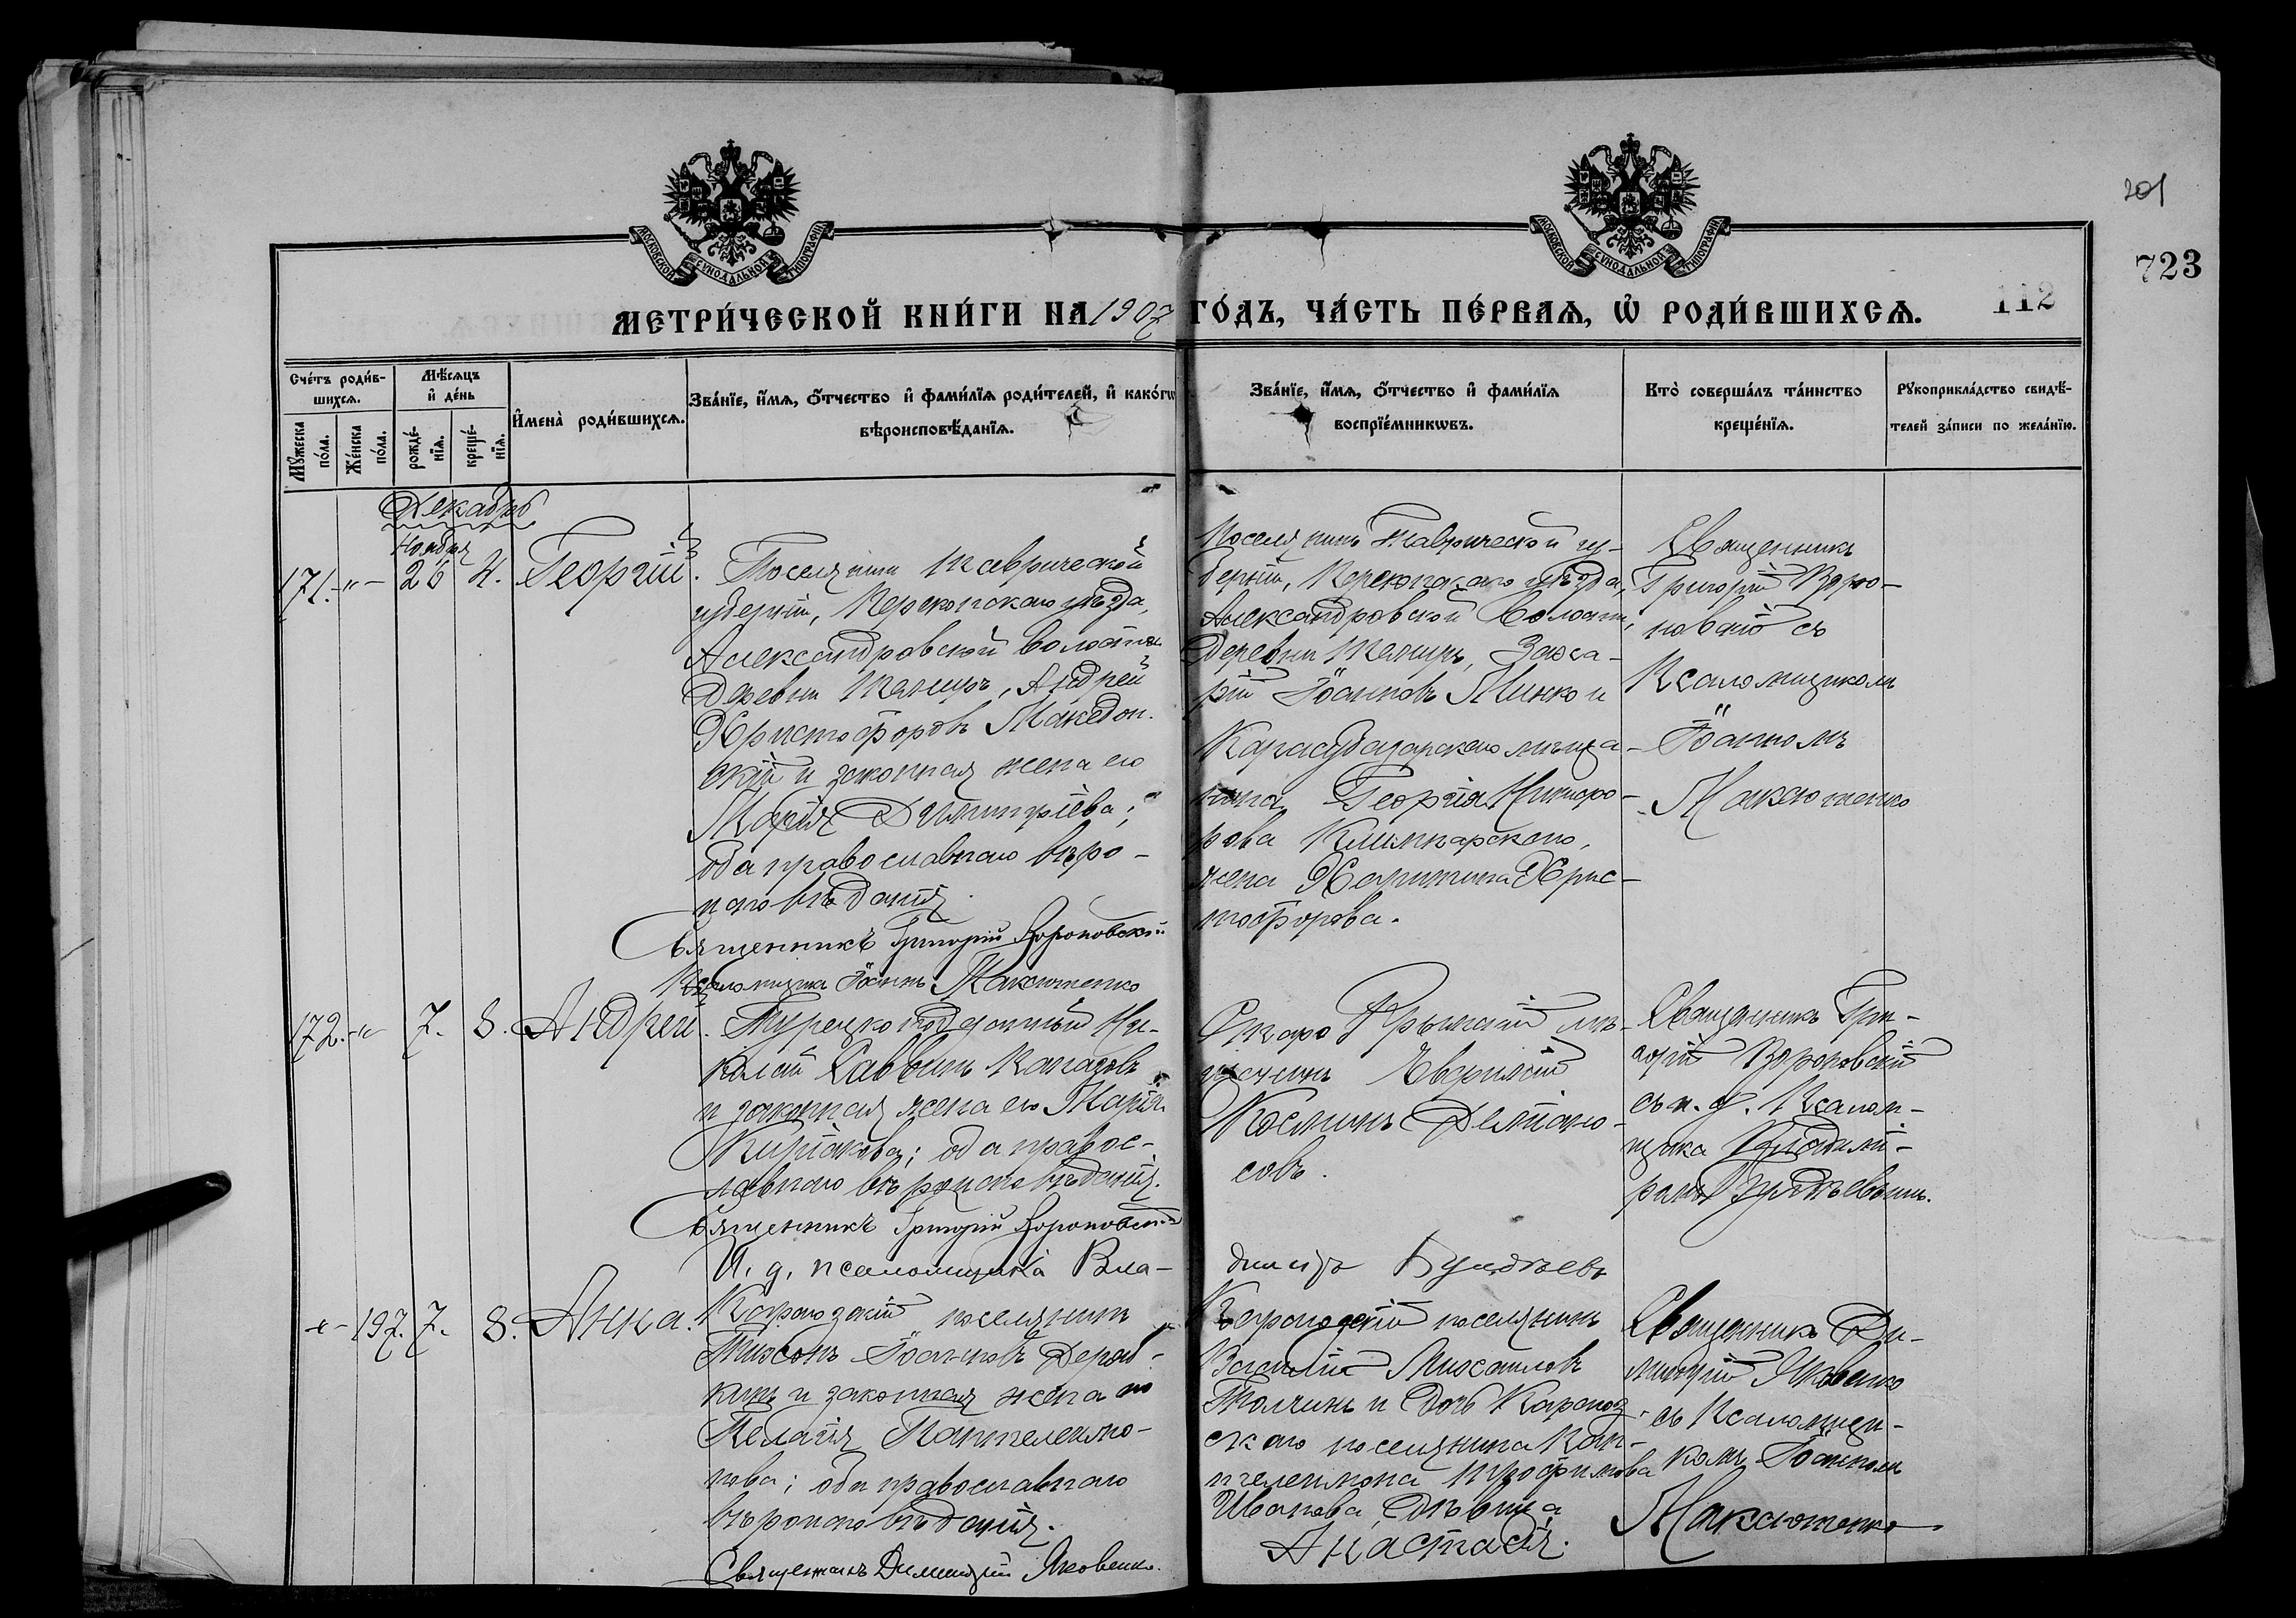 201
723
112
МОСКОВСКОЙ СѴНОДАЛЬНОЙ ТИПОГРАФІИ
МОСКОВСКОЙ СѴНОДАЛЬНОЙ ТИПОГРАФІИ
МЕТРИ́ЧЕСКОЙ КНИ́ГИ НА 1907 ГО́ДЪ, ЧА́СТЬ ПЕ́РВАѦ, Ѡ҆ РОДИ́ВШИХСѦ.
Сче́тъ роди́в-
шихсѧ.
Мꙋ́жеска по́ла.
Же́нска по́ла.
Мѣ́сѧцъ
и҆ де́нь
рожде́-
нїѧ.
креще́-
нїѧ.
И҆мена̀ роди́вшихсѧ.
Зва́нїе, и҆́мѧ, ѻ҆́тчество и҆ фами́лїѧ роди́телей, и҆ како́гѡ
вѣроисповѣ́данїѧ.
Зва́нїе, и҆́мѧ, ѻ҆́тчество и҆ фами́лїѧ
воспрїе́мникѡвъ.
Кто̀ соверша́лъ та́инство
креще́нїѧ.
Рꙋкоприкла́дство свидѣ́-
телей за́писи по жела́нїю.
Декабрь
Ноября
171. -"- 26 4. Георгій.
Поселянинъ Таврической
губерніи, Перекопскаго уѣзда,
Александровской волости
деревни Андрей
Христофоровъ Македон-
скій и законная жена его
Марія Димитріева;
оба православнаго вѣро-
исповѣданія.
Священникъ Григорій Вороновскій
Псаломщикъ Іоаннъ Максютенко
Поселянинъ Таврической гу-
берніи, Перекопскаго уѣзда,
Александровской волости,
деревни Заха-
рій Іоанновъ Минко и
Карасубазарскаго мѣща-
нина Георгія Никифо-
рова
жена Харитина Хрис-
тофорова.
Священникъ
Григорій Воро-
новскій съ
Псаломщикомъ
Іоанномъ
Максютенко
172. -"- 7. 8. Андрей.
Турецко подданный Ни-
колай Саввинъ
и законная жена его Марія
Киріакова; оба правос-
лавнаго вѣроисповѣданія.
Священникъ Григорій Вороновскій
И. д. псаломщика Вла-
диміръ
Старо Крымскій мѣ-
щанинъ
Косминъ
совъ.
Священникъ Гри-
горій Вороновскій
съ и. д. Псалом-
щика Владимі-
ромъ
-"- 197. 7. 8. Анна.
поселянинъ
Іоанновъ
кинъ и законная жена его
Пелагія Пантелеимо-
нова; оба православнаго
вѣроисповѣданія.
Священникъ Димитрій Яковенко.
поселянинъ
Василій Михаиловъ
и дочь
скаго поселянина Пан-
телеимона Трофимова
Иванова, дѣвица
Анастасія.
Священникъ Ди-
митрій Яковенко
съ Псаломщи-
комъ Іоанномъ
Максютенко